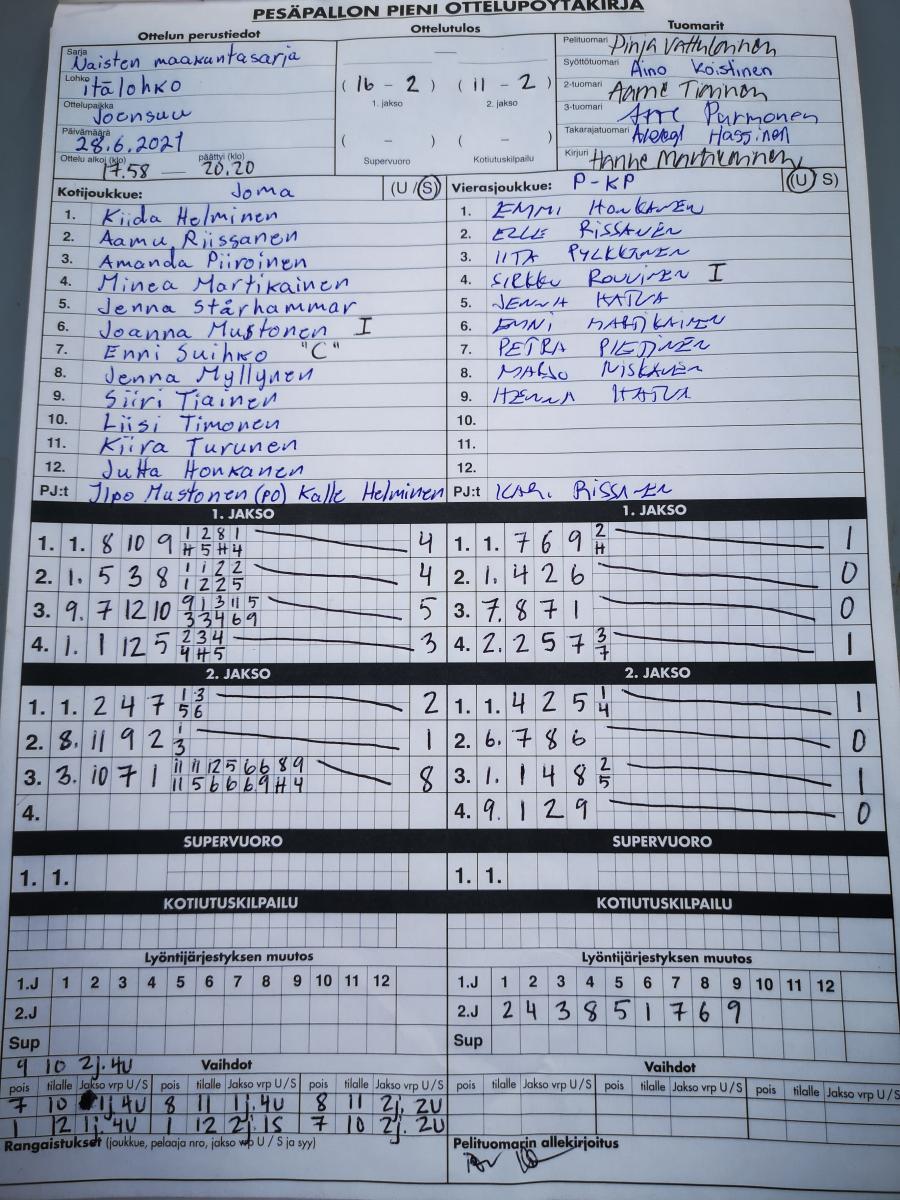 PESÄPALLON PIENI OTTELUPÖYTÄKIRJA
Ottelun perustiedot
Ottelutulos
Tuomarit
Sarja Naisten maakuntasarja
Lohko itälohko
Ottelupaikka Joensuu
Päivämäärä 28.6.2021
Ottelu alkoi (klo) 17.58 — päättyi (klo) 20.20
( 16 - 2 ) ( 11 - 2 )
1. jakso 2. jakso
( - ) ( - )
Supervuoro Kotiutuskilpailu
Pelituomari Pinja
Syöttötuomari Aino Koistinen
2-tuomari
3-tuomari Purmonen
Takarajatuomari Hassinen
Kirjuri Hanne Martikainen
Kotijoukkue: Joma (U / S)
1. Kiida Helminen
2. Aamu Riissanen
3. Amanda Piiroinen
4. Minea Martikainen
5. Jenna Stårhammar
6. Joanna Mustonen I
7. Enni Suihko "C"
8. Jenna Myllynen
9. Siiri Tiainen
10. Liisi Timonen
11. Kiira Turunen
12. Jutta Honkanen
PJ:t Ilpo Mustonen (PO) Kalle Helminen
Vierasjoukkue: P-KP (U / S)
1. EMMI HONKANEN
2. ELLE RISSANEN
3. IITA PYLKKÄNEN
4. SIRKKU ROUVINEN I
5. JENNA
6. EMNI MARTIKAINEN
7. PETRA PIETINEN
8. NISKANEN
9. HENNA
10.
11.
12.
PJ:t KARI RISSANEN
1. JAKSO
1. 1. 8 10 9 1 2 8 1 4
H 5 H 4
2. 1. 5 3 8 1 1 2 2 4
1 2 2 5
3. 9. 7 12 10 9 1 3 11 5 5
3 3 4 6 9
4. 1. 1 12 5 2 3 4 3
4 H 5
1. JAKSO
1. 1. 7 6 9 2 1
H
2. 1. 4 2 6 0
3. 7. 8 7 1 0
4. 2. 2 5 7 3 1
7
2. JAKSO
1. 1. 2 4 7 1 3 2
5 6
2. 8. 11 9 2 1 1
3
3. 3. 10 7 1 11 11 12 5 6 6 8 9 8
11 5 6 6 6 9 H 4
4.
2. JAKSO
1. 1. 4 2 5 1 1
4
2. 6. 7 8 6 0
3. 1. 1 4 8 2 1
5
4. 9. 1 2 9 0
SUPERVUORO
1. 1.
SUPERVUORO
1. 1.
KOTIUTUSKILPAILU
KOTIUTUSKILPAILU
Lyöntijärjestyksen muutos
1.J 1 2 3 4 5 6 7 8 9 10 11 12
2.J
Sup
Lyöntijärjestyksen muutos
1.J 1 2 3 4 5 6 7 8 9 10 11 12
2.J 2 4 3 8 5 1 7 6 9
Sup
9 10 2j. 4U Vaihdot
pois tilalle Jakso vrp U / S pois tilalle Jakso vrp U / S pois tilalle Jakso vrp U / S
7 10 1j 4U 8 11 1j. 4U 8 11 2j. 2U
1 12 1j. 4U 1 12 2j. 1S 7 10 2j. 2U
Vaihdot
pois tilalle Jakso vrp U / S pois tilalle Jakso vrp U / S pois tilalle Jakso vrp U / S
Rangaistukset (joukkue, pelaaja nro, jakso vrp U / S ja syy)
Pelituomarin allekirjoitus